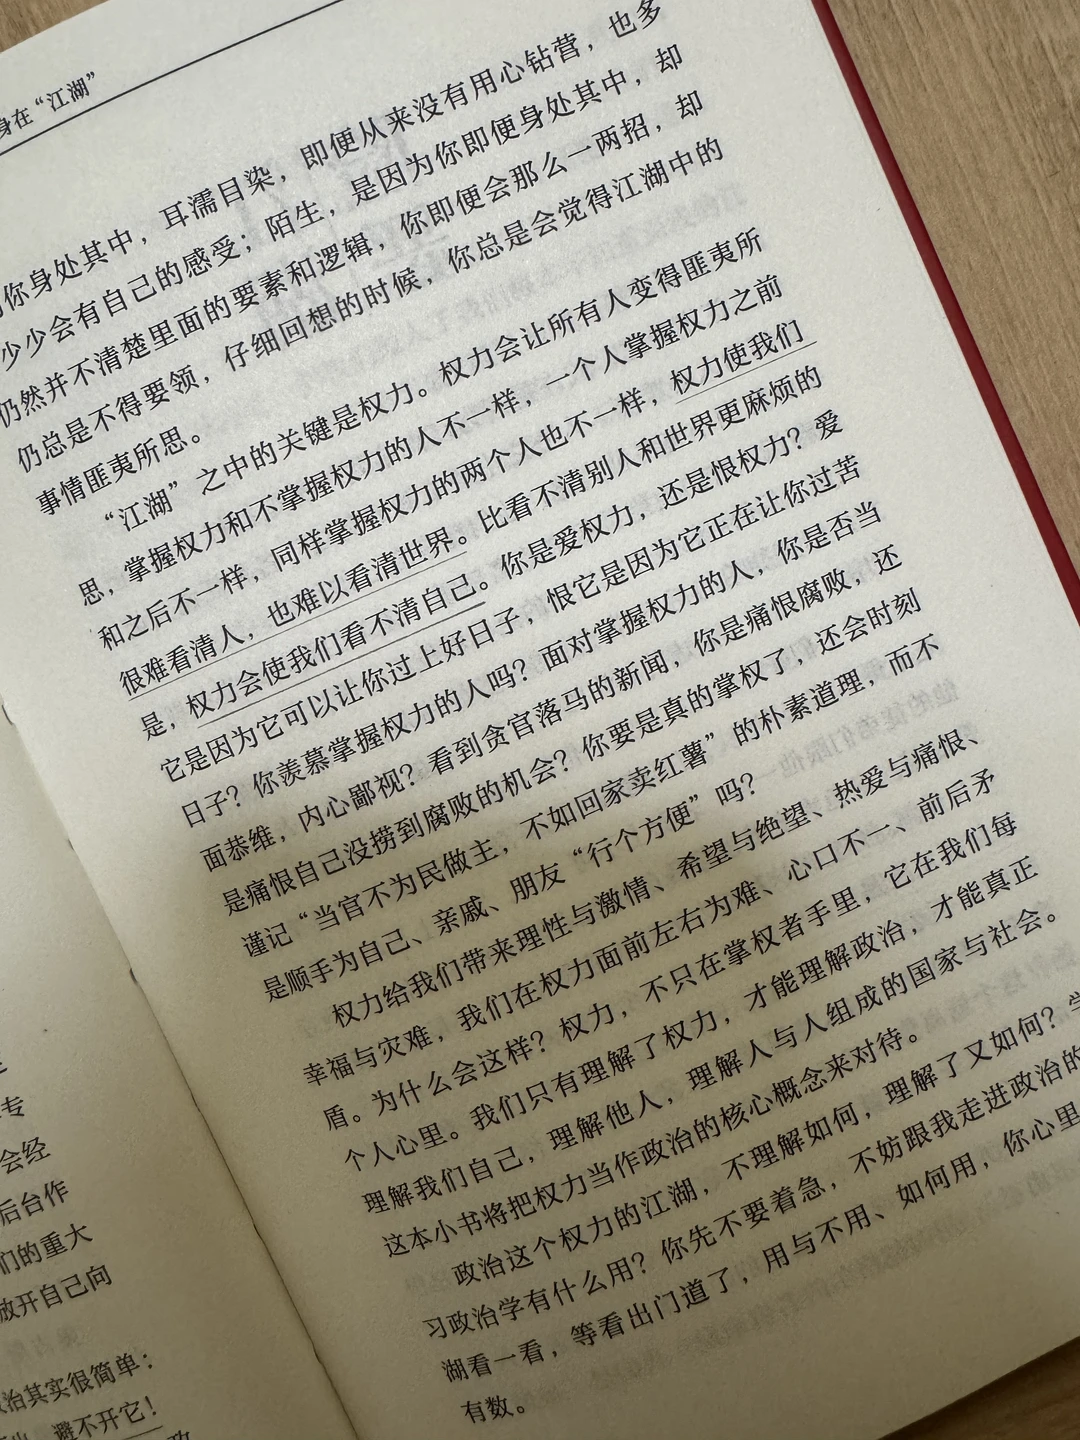 身在“江湖”
你身处其中，耳濡目染，即便从来没有用心钻营，也多
少少会有自己的感受；陌生，是因为你即便身处其中，却
仍然并不清楚里面的要素和逻辑，你即便会那么一两招，却
仍总是不得要领，仔细回想的时候，你总是会觉得江湖中的
事情匪夷所思。
“江湖”之中的关键是权力。权力会让所有人变得匪夷所
思，掌握权力和不掌握权力的人不一样，一个人掌握权力之前
和之后不一样，同样掌握权力的两个人也不一样，权力使我们
很难看清人，也难以看清世界。比看不清别人和世界更麻烦的
是，权力会使我们看不清自己。你是爱权力，还是恨权力？爱
它是因为它可以让你过上好日子，恨它是因为它正在让你过苦
日子？你羡慕掌握权力的人吗？面对掌握权力的人，你是否当
面恭维，内心鄙视？看到贪官落马的新闻，你是痛恨腐败，还
是痛恨自己没捞到腐败的机会？你要是真的掌权了，还会时刻
谨记“当官不为民做主，不如回家卖红薯”的朴素道理，而不
是顺手为自己、亲戚、朋友“行个方便”吗？
权力给我们带来理性与激情、希望与绝望、热爱与痛恨、
幸福与灾难，我们在权力面前左右为难、心口不一、前后矛
盾。为什么会这样？权力，不只在掌权者手里，它在我们每
个人心里。我们只有理解了权力，才能理解政治，才能真正
理解我们自己，理解他人，理解人与人组成的国家与社会。
这本小书将把权力当作政治的核心概念来对待。
政治这个权力的江湖，不理解如何，理解了又如何？学
习政治学有什么用？你先不要着急，不妨跟我走进政治的
湖看一看，等看出门道了，用与不用、如何用，你心里
有数。
专
会经
后台作
们的重大
放开自己向
治其实很简单：
避不开它！